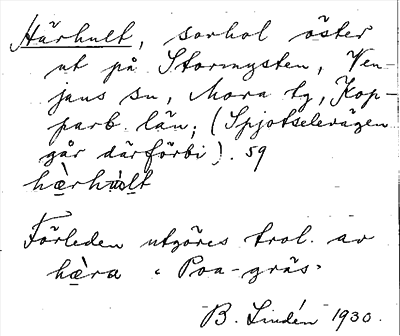 Härhult, sorhol öster
ut på Stormysten, Ven-
jans sn, Mora tg, Kop-
parb län; (Spjotselevägen
går därförbi). 59
hæ̀rhúlt
Förleden utgöres trol. av
hæ̀ra "Poa-gräs"
B. Lindén 1930.